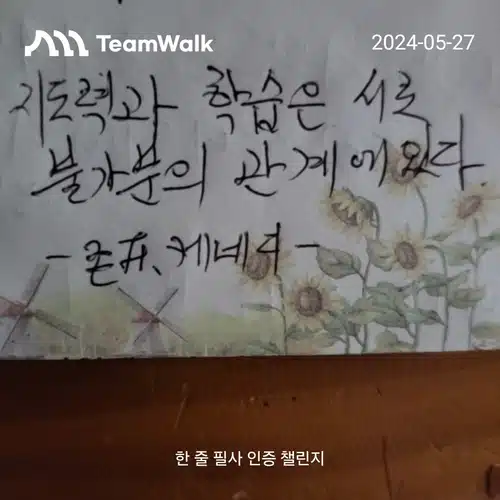 TeamWalk
2024-05-27
지도력과 학습은 서로
불가분의 관계에 있다
- 존.F. 케네디 -
한 줄 필사 인증 챌린지